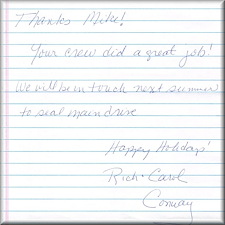 Thanks Mike!
Your crew did a great job!
We will be in touch next summer
to seal main drive
Happy Holidays!
Rich + Carol
Conway